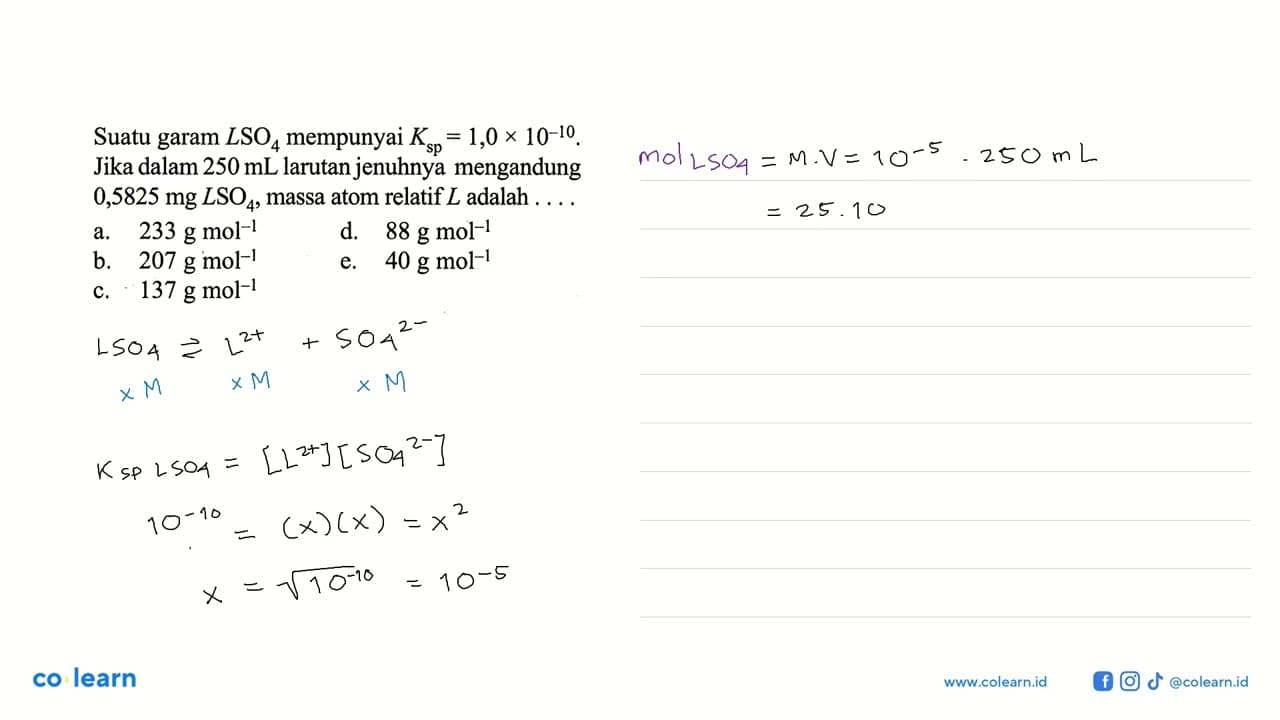 Suatu garam LSO₄ mempunyai Kₛₚ = 1,0 × 10⁻¹⁰.
Jika dalam 250 mL larutan jenuhnya mengandung
0,5825 mg LSO₄, massa atom relatif L adalah . . . .
a. 233 g mol⁻¹ d. 88 g mol⁻¹
b. 207 g mol⁻¹ e. 40 g mol⁻¹
c. 137 g mol⁻¹
LSO₄ ⇌ L²⁺ + SO₄²⁻
x M x M x M
Ksp LSO₄ = [L²⁺][SO₄²⁻]
10⁻¹⁰ = (x)(x) = x²
x = √10⁻¹⁰ = 10⁻⁵
mol LSO₄ = M.V = 10⁻⁵ . 250 mL
= 25.10
co learn
www.colearn.id @colearn.id